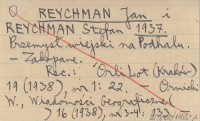 REYCHMAN Jan i
REYCHMAN Stefan 1937.
Przemysł wiejski na Podhalu.
- Zakopane.
Rec.: "Orli Lot (Kraków)
19 (1938), nr 1: 22. Ormicki
W., Wiadomości Geograficzne
16 (1938), nr 3-4: